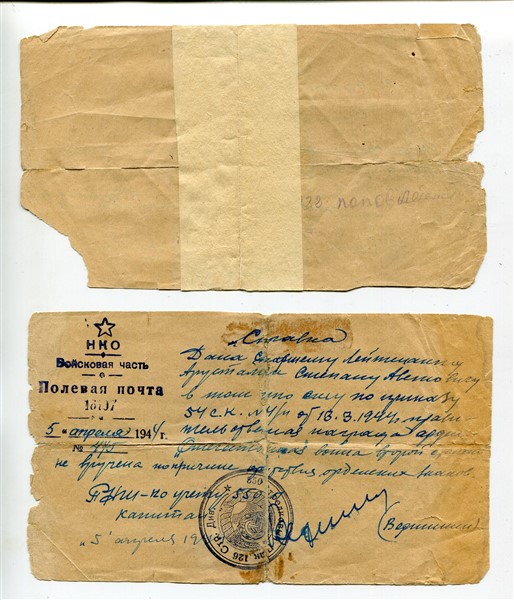 попов
НКО
Войсковая часть
Полевая почта
16107
5 "апреля 1944 г.
№ 445
„Справка
Дана Старшему Лейтенанту
Степану Аветовичу
в том что ему по приказу
54 С.К. №4/н от 18.3.1944г. прави
тельственная награда орден
Отечественная война второй степени
не вручена по причине отсутствия орденских знаков.
ПНШ-1 по учету
капитан
"5" апреля 19
126 Стр. Див.
550
(Ведишкин)